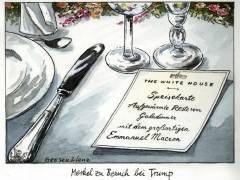 THE WHITE HOUSE
Speisekarte
Aufgewärmte Reste vom
Galadinner
mit dem großartigen
Emmanuel Macron
GRESER & LENZ
Merkel zu Besuch bei Trump